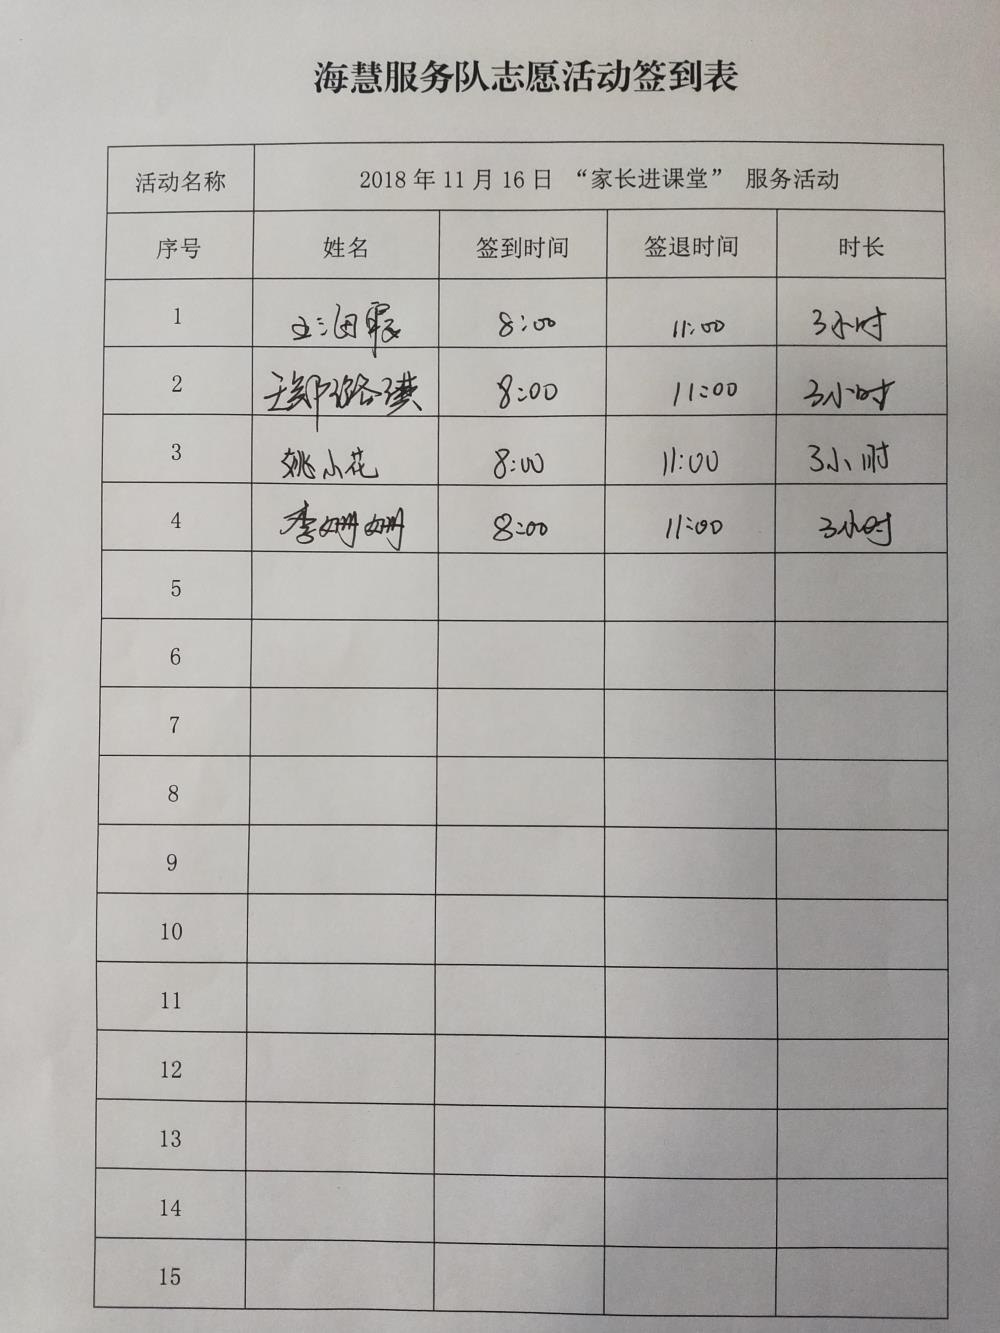 海慧服务队志愿活动签到表
活动名称 2018年11月16日 “家长进课堂” 服务活动
序号 姓名 签到时间 签退时间 时长
1 王海霞 8:00 11:00 3小时
2 8:00 11:00 3小时
3 姚小花 8:00 11:00 3小时
4 李姗姗 8:00 11:00 3小时
5
6
7
8
9
10
11
12
13
14
15